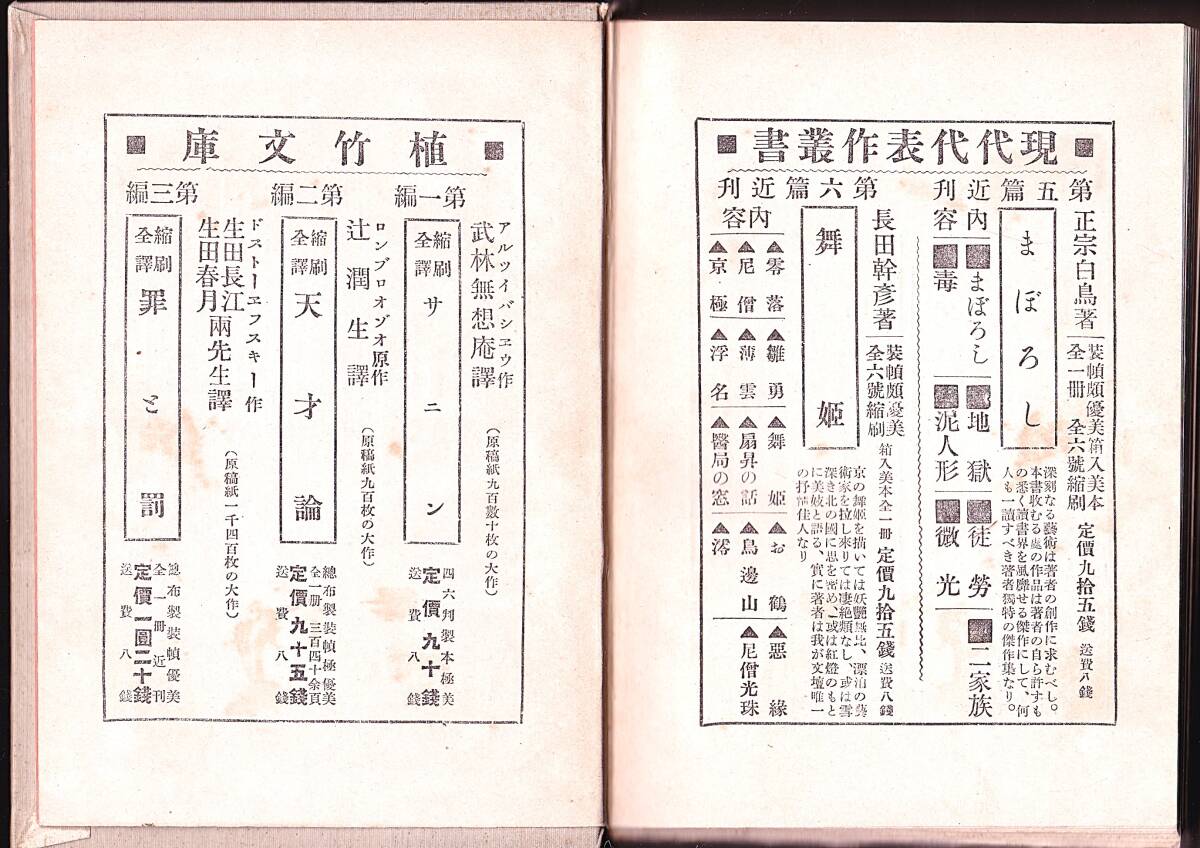 ■現代代表作叢書■
第五篇近刊
正宗白鳥著
裝幀頗優美箱入美本
全一册 全六號縮刷
定價九拾五錢 送費八錢
まぼろし
深刻なる藝術は著者の創作に求むべし。
本書收むる處の作品は著者の自ら許すも
の悉く讀書界を風靡せる傑作にして、何
人も一讀すべき著者獨特の傑作集なり。
內容
■まぼろし■地獄■徒勞■二家族
■毒■泥人形■微光
第六篇近刊
長田幹彥著
裝幀頗優美
全六號縮刷
箱入美本全一册 定價九拾五錢 送費八錢
舞姬
京の舞姬を描いては妖艷無比、漂泊の藝
術家を拉し來りては凄絕類なし、或は雪
深き北の國に思を密め、或は紅燈のもと
に美妓と語る、實に著者は我が文壇唯一
の抒情佳人なり
內容
▲零落▲雛勇▲舞姬▲お鶴▲惡緣
▲尼僧▲薄雲▲扇昇の話▲鳥邊山▲尼僧光珠
▲京極▲浮名▲醫局の窓▲澪
■植竹文庫■
第一編
アルツイバシエウ作
武林無想庵譯
(原稿紙九百數十枚の大作)
縮刷
全譯
サニン
四六判製本極美
定價九十錢
送費八錢
第二編
ロンブロオゾオ原作
辻潤生譯
(原稿紙九百枚の大作)
縮刷
全譯
天才論
總布製裝幀極優美
全一册 三百四十余頁
定價九十五錢
送費八錢
第三編
ドストーエフスキー作
生田長江
生田春月
兩先生譯
(原稿紙一千四百枚の大作)
縮刷
全譯
罪と罰
總布製裝幀優美
全一册近刊
定價一圓二十錢
送費八錢